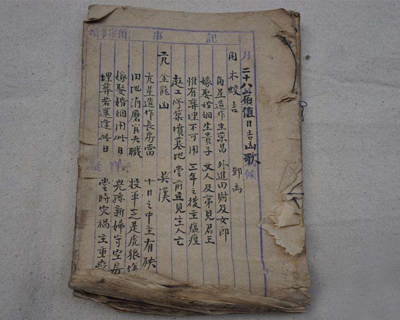 記事
月
候
二十八宿值日吉凶歌
角木蛟吉 鄧禹
角星造作主榮昌 外進田財及女郎
嫁娶婚姻生貴子 文人及第見君王
惟有葬埋不可用 三年之後主瘟疫
起工修築墳墓地 堂前立見主人亡
亢金龍凶 吳漢
亢星造作長房當 十日之中主有殃
田地消磨官失職 投軍定是虎狼傷
嫁娶婚姻用此日 兒孫新婦守空房
埋葬若還逢此日 當時灾禍主重喪